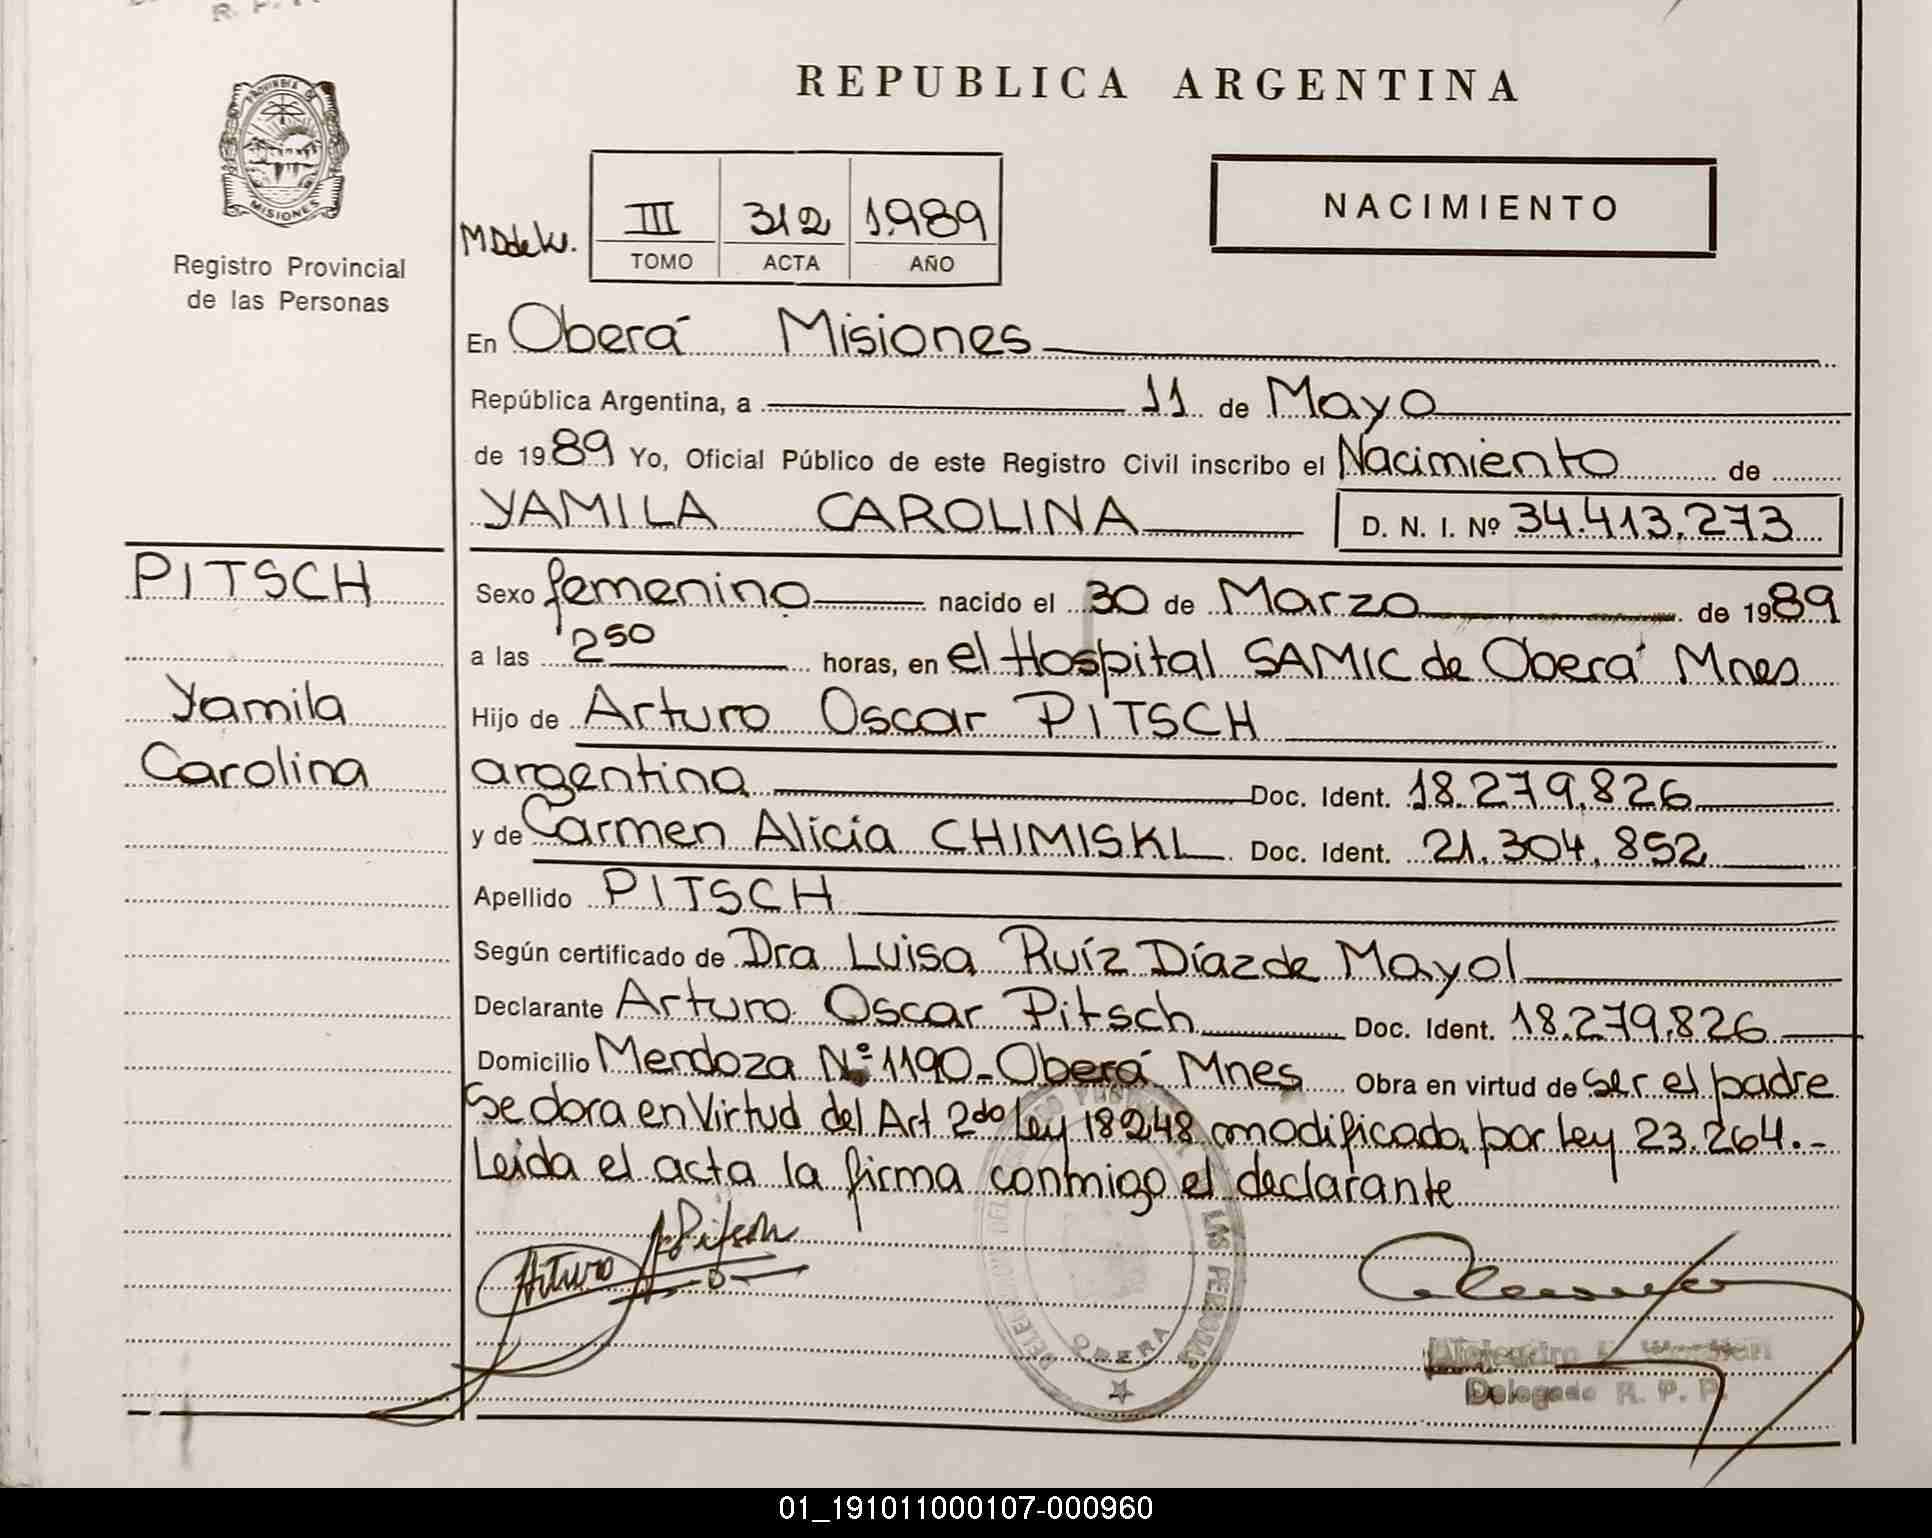 R. P. P.
PROVINCIA DE
MISIONES
Registro Provincial
de las Personas
REPUBLICA ARGENTINA
NACIMIENTO
III 312 1.989
TOMO ACTA AÑO
En Oberá Misiones
República Argentina, a 11 de Mayo
de 1989 Yo, Oficial Público de este Registro Civil inscribo el Nacimiento de
YAMILA CAROLINA D. N. I. Nº 34.413.273
PITSCH
Yamila
Carolina
Sexo femenino nacido el 30 de Marzo de 1989
a las 2 50 horas, en el Hospital SAMIC de Oberá Mnes
Hijo de Arturo Oscar PITSCH
argentina Doc. Ident. 18.279.826
y de Carmen Alicia CHIMISKI Doc. Ident. 21.304.852
Apellido PITSCH
Según certificado de Dra Luisa Ruíz Díaz de Mayol
Declarante Arturo Oscar Pitsch Doc. Ident. 18.279.826
Domicilio Mendoza Nº 1190-Oberá Mnes Obra en virtud de ser el padre
Se obra en Virtud del Art 2do Ley 18248 modificada por Ley 23.264.-
Leida el acta la firma conmigo el declarante
Arturo Pitsch
LAS PERSONAS
OBERA
Delegado R. P. P.
01_191011000107-000960